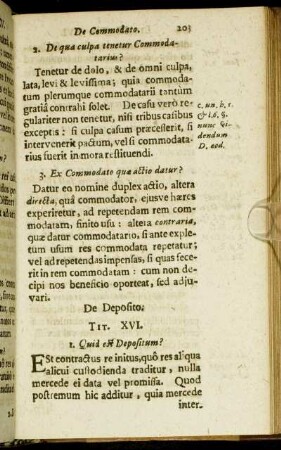 De Commodato. 203
2. De qua culpa tenetur Commoda-
tarius?
Tenetur de dolo, & de omni culpa,
lata, levi & levissima; quia commoda-
tum plerumque commodatarii tantùm
gratiâ contrahi solet. De casu verò re-
gulariter non tenetur, nisi tribus casibus
exceptis: si culpa casum præcesserit, si
intervenerit pactum, vel si commodata-
rius fuerit in mora restituendi.
c. un. b. t.
& l. 5. §.
nunc vi-
dendum
D. eod.
3. Ex Commodato quæ actio datur?
Datur eo nomine duplex actio, altera
directa, quâ commodator, ejusve hæres
experiretur, ad repetendam rem com-
modatam, finito usu: altera contraria,
quæ datur commodatario, si ante exple-
tum usum res commodata repetatur;
vel ad repetendas impensas, si quas fece-
rit in rem commodatam: cum non de-
cipi nos beneficio oporteat, sed adju-
vari.
De Deposito.
TIT. XVI.
1. Quid est Depositum?
Est contractus re initus, quô res aliqua
alicui custodienda traditur, nulla
mercede ei data vel promissa. Quod
postremum hic additur, quia mercede
inter.